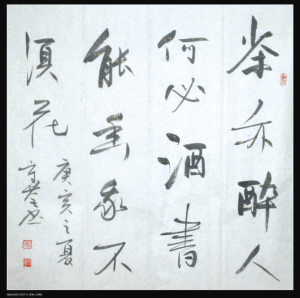 茶亦醉人
何必酒書
能香我不
須花
庚寅之夏